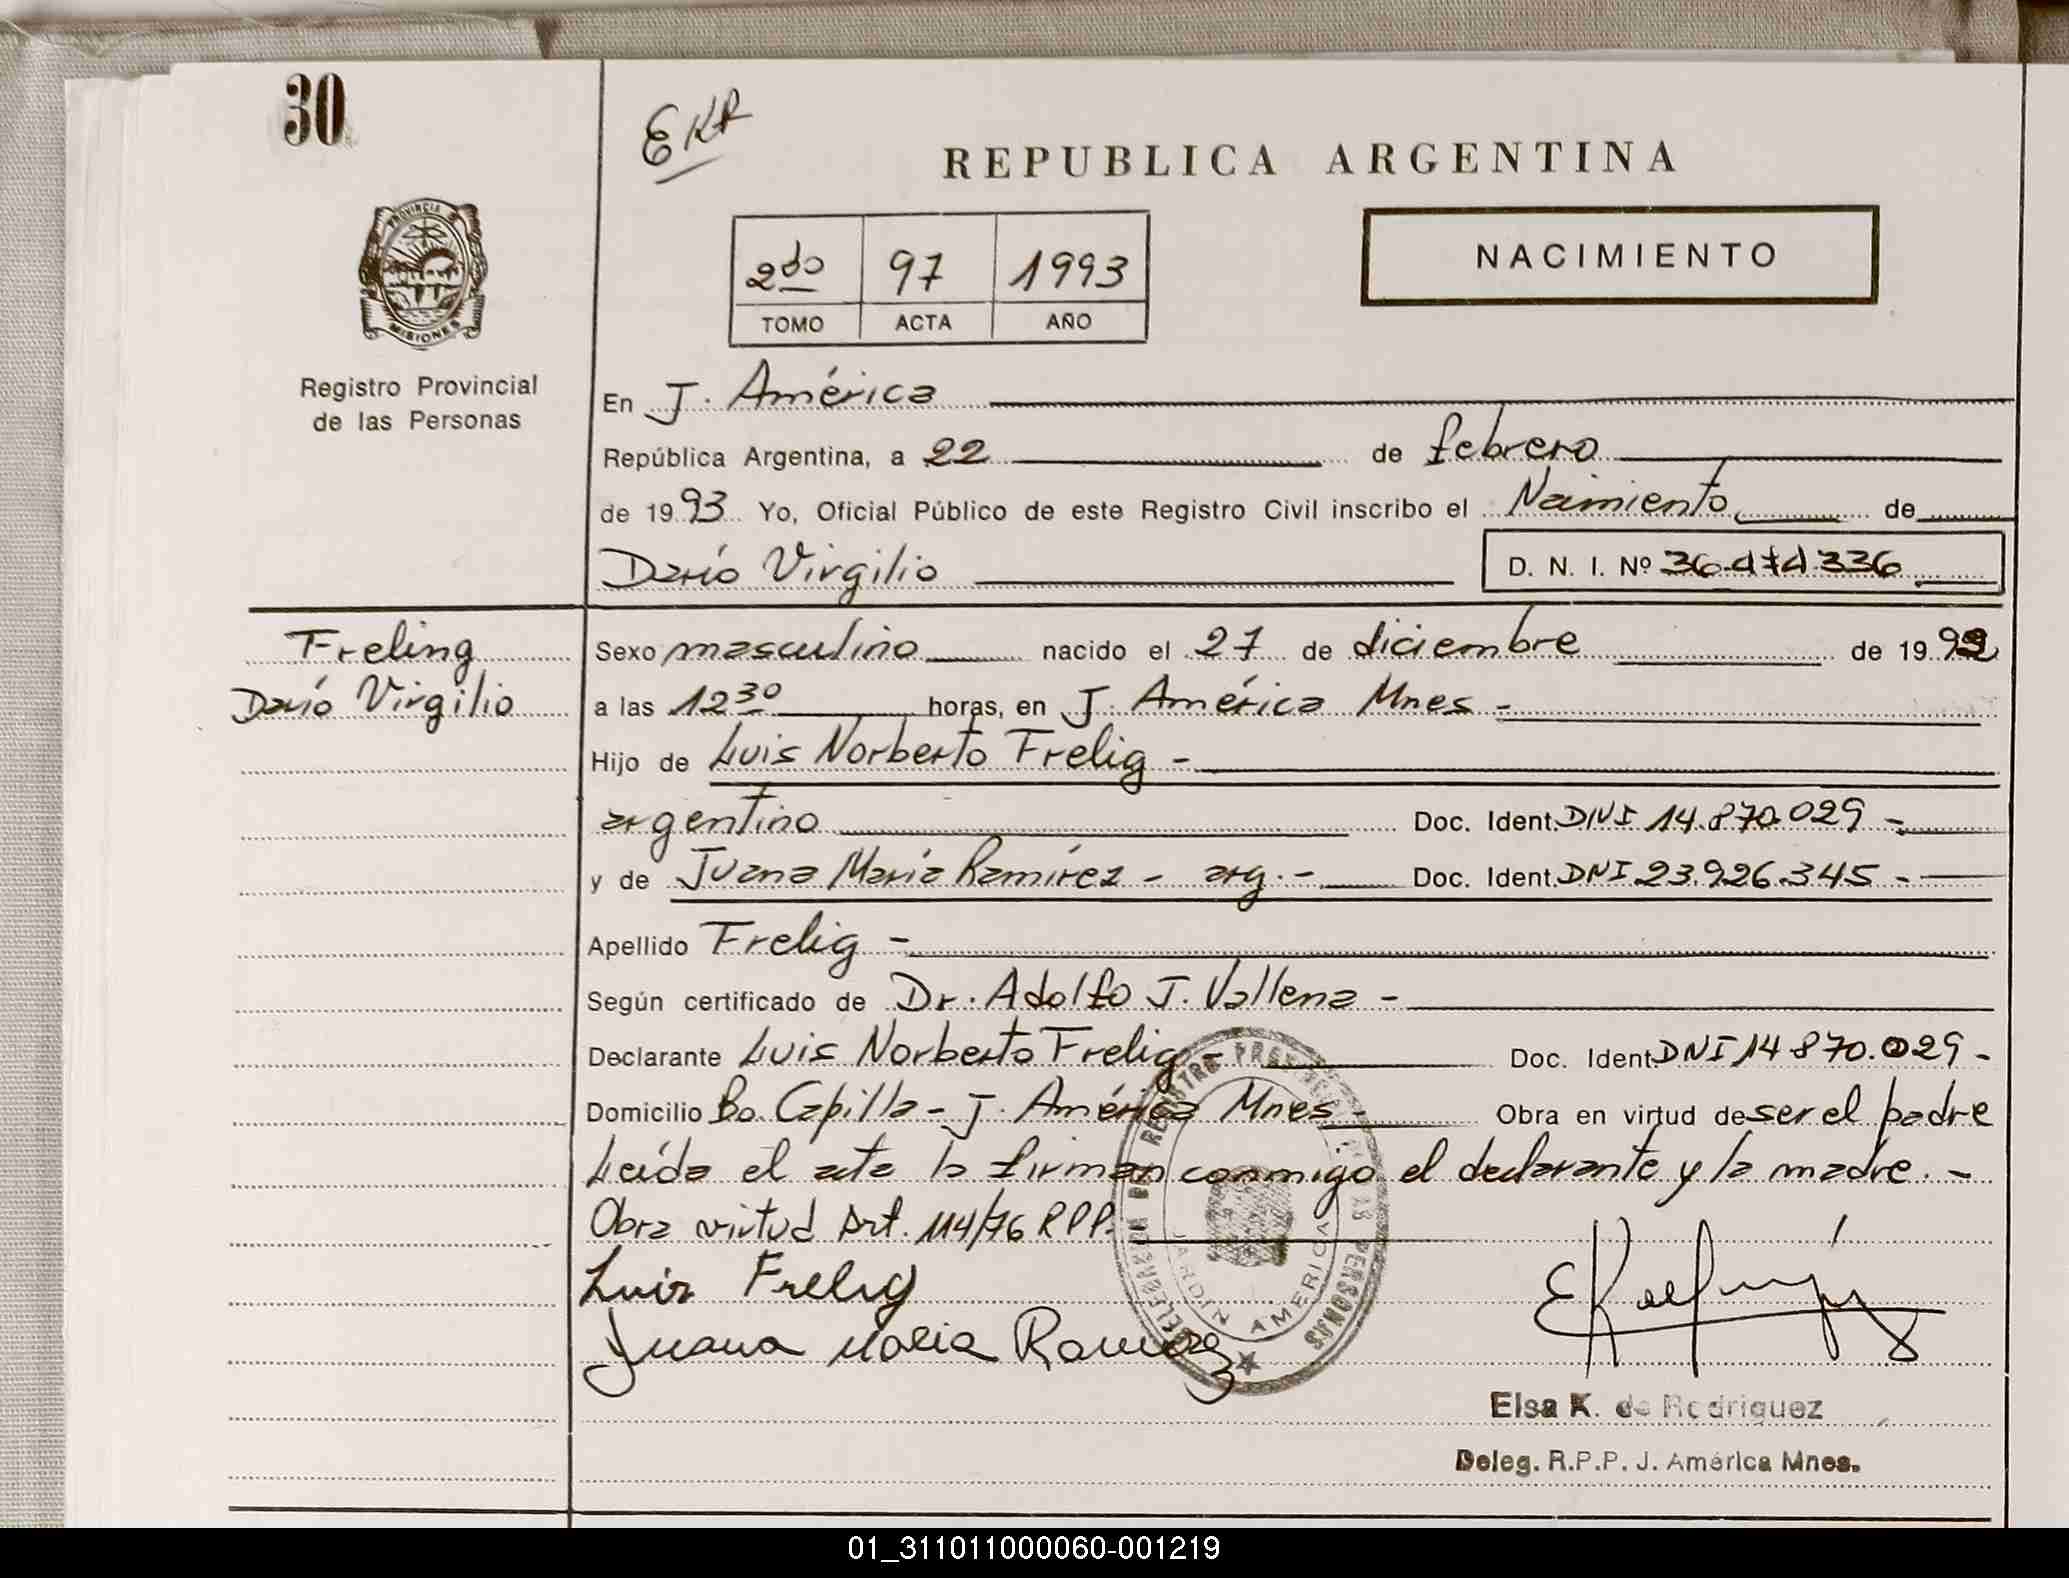 30
EKR
REPUBLICA ARGENTINA
PROVINCIA DE
MISIONES
2do 97 1993
TOMO ACTA AÑO
NACIMIENTO
Registro Provincial
de las Personas
En J. América
República Argentina, a 22 de febrero
de 1993 Yo, Oficial Público de este Registro Civil inscribo el Naimiento de
Darío Virgilio D. N. I. Nº 36.474.336
Freling
Darío Virgilio
Sexo masculino nacido el 27 de diciembre de 1992
a las 12 30 horas, en J. América Mnes -
Hijo de Luis Norberto Frelig -
argentino Doc. Ident. DNI 14.870.029 -
y de Juana María Ramírez - arg. - Doc. Ident. DNI 23.926.345 -
Apellido Frelig -
Según certificado de Dr. Adolfo J. Vallena -
Declarante Luis Norberto Frelig - Doc. Ident. DNI 14 870.029 -
Domicilio Bo. Capilla - J. América Mnes - Obra en virtud de ser el padre
Leída el acta la firman conmigo el declarante y la madre. -
Obra virtud Art. 114/76 RPP.
Luis Frelig
Juana Maria Ramirez
DELEGACION DEL REGISTRO PROVINCIAL DE LAS PERSONAS
JARDIN AMERICA
Elsa K. de Rodriguez
Deleg. R.P.P. J. América Mnes.
01_311011000060-001219